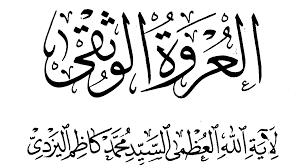 العروة الوثقى
لآية الله العظمى السيد محمد كاظم اليزدي